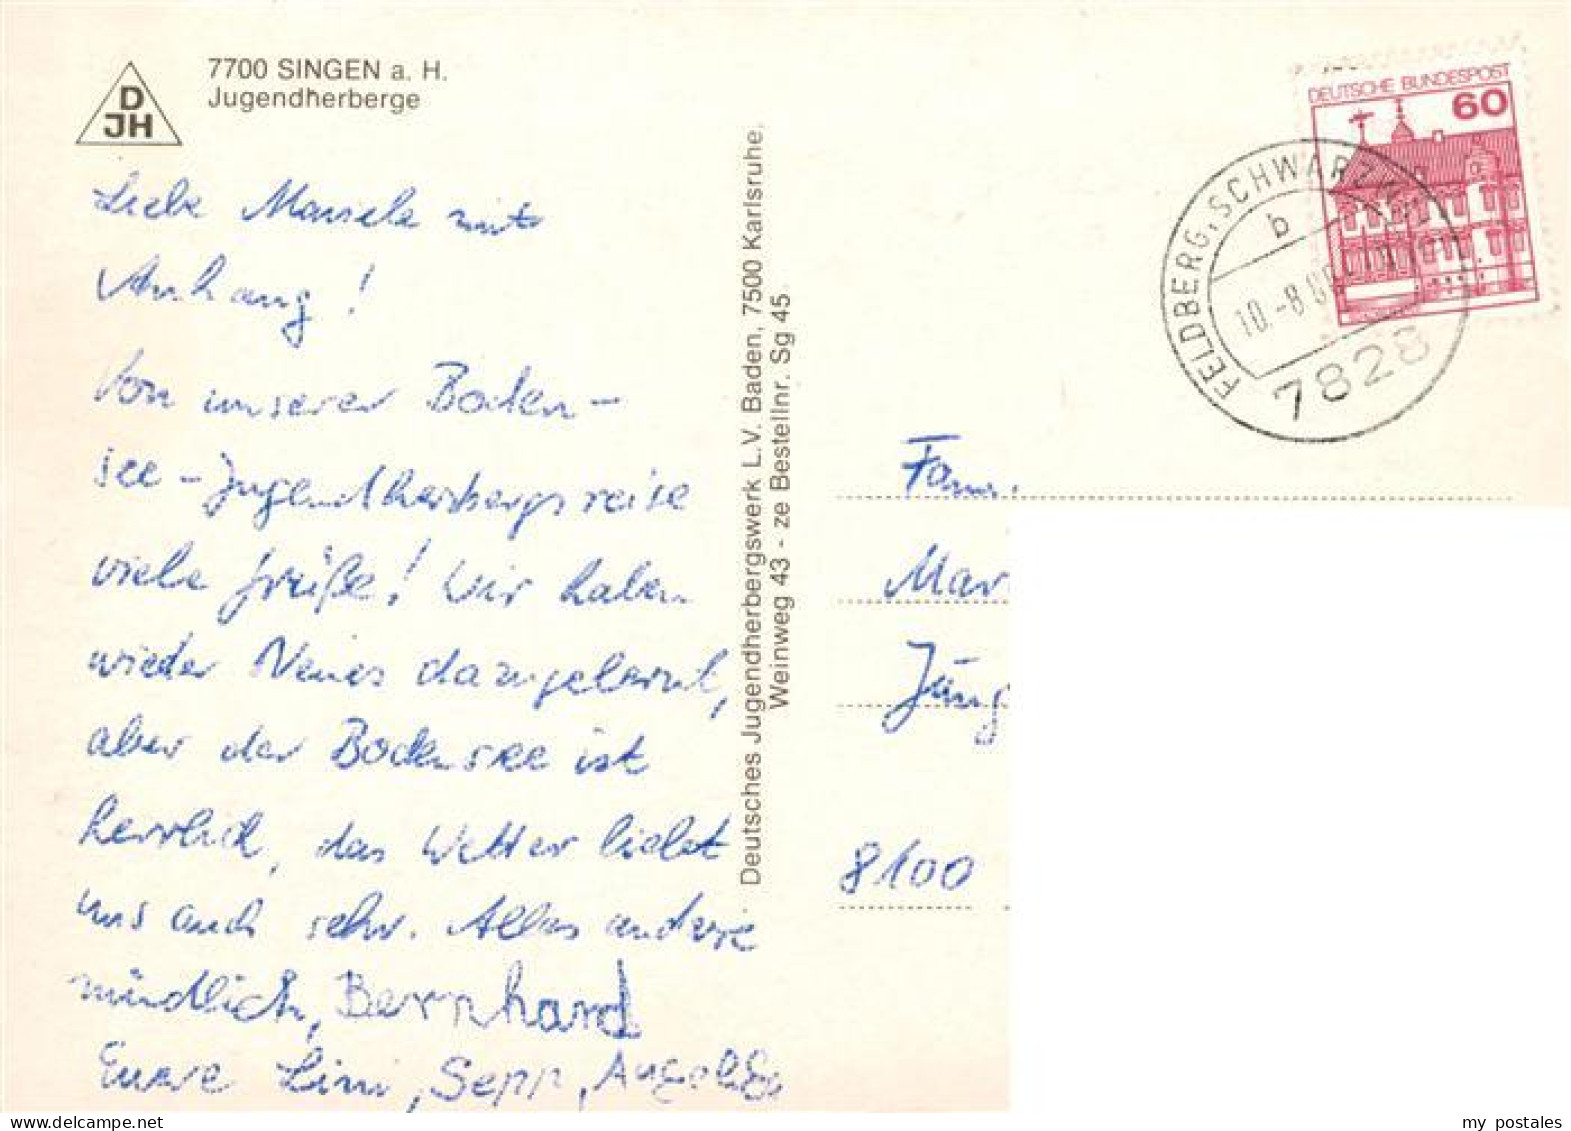 D
JH
7700 SINGEN a. H.
Jugendherberge
Liebe Mariele mit
Anhang!
Von unserer Boden-
see-Jugendherbergsreise
viele Grüße! Wir haben
wieder Neues dazugelernt,
aber der Bodensee ist
herrlich, das Wetter liebt
uns auch sehr. Alles andere
mündlich, Bernhard
Eure Lini, Sepp,
Deutsches Jugendherbergswerk L.V. Baden, 7500 Karlsruhe,
Weinweg 43 - ze Bestellnr. Sg 45
DEUTSCHE BUNDESPOST
60
FELDBERG, SCHWARZWALD
b
10.-8.
7828
Fam.
Mar
Jüng
8100
my postales